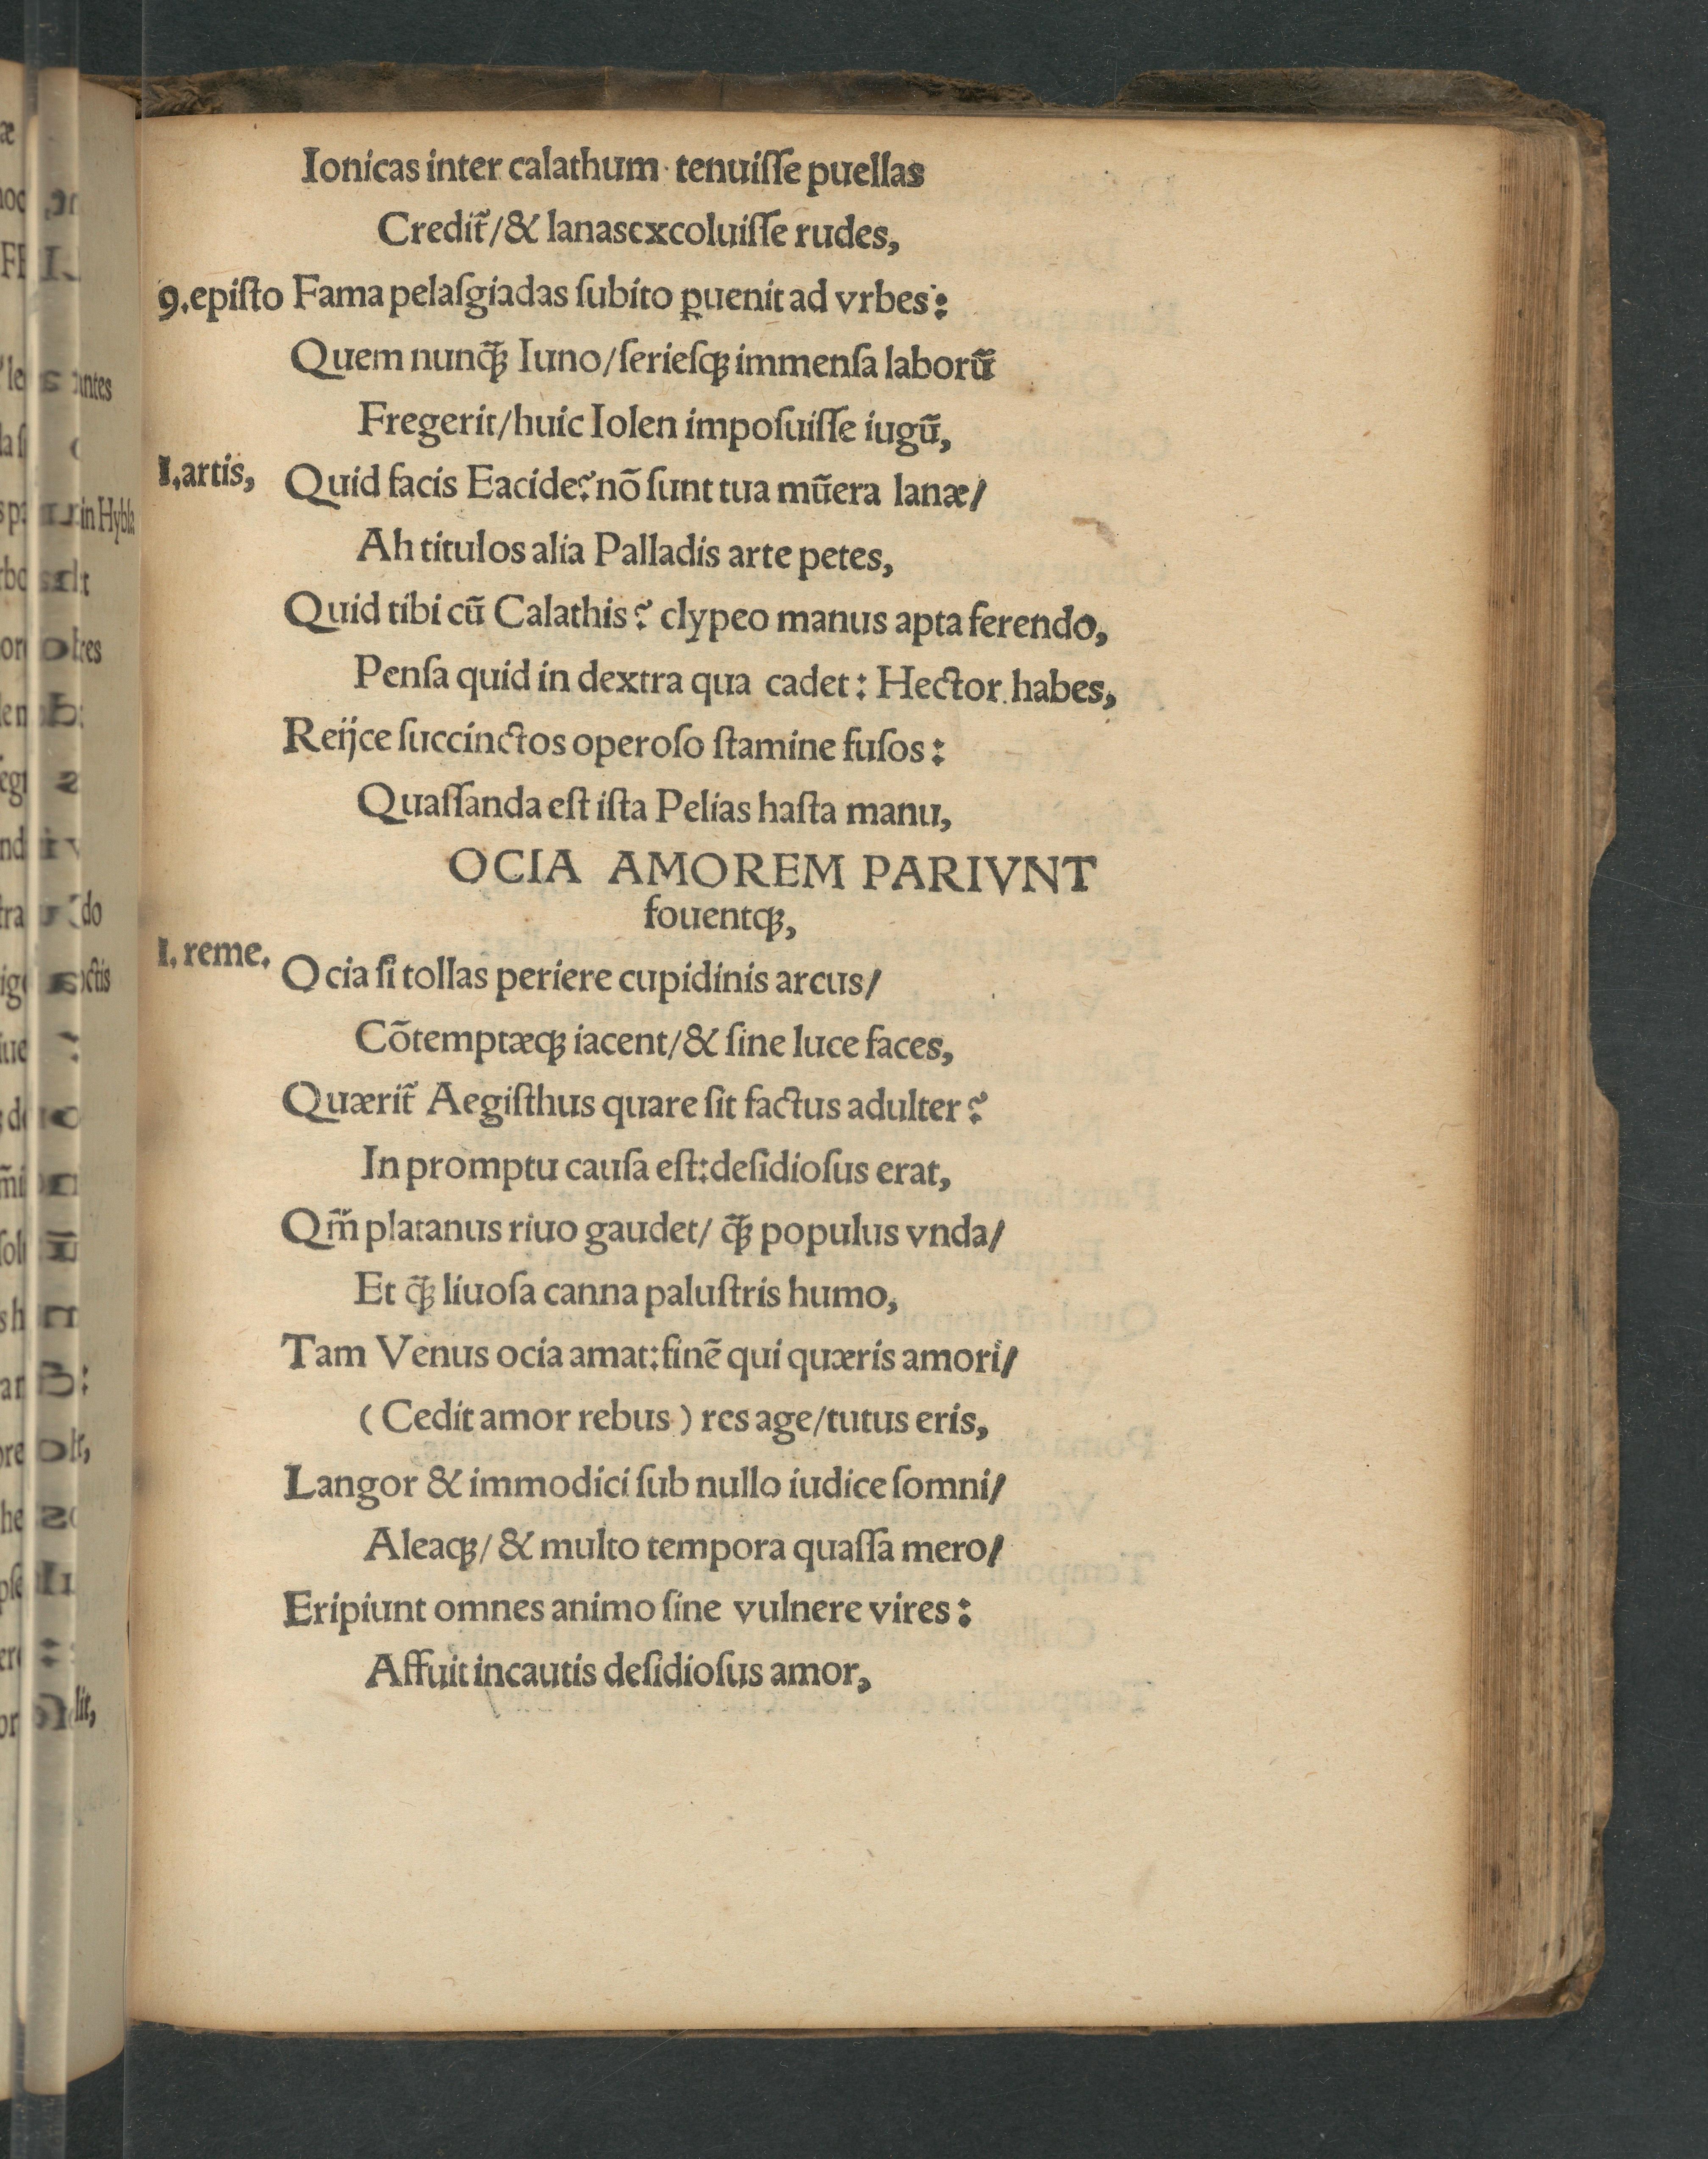 Ionicas inter calathum tenuiſſe puellas
Credit᷑/& lanasexcoluiſſe rudes,
9.epiſto Fama pelaſgiadas ſubito ꝑuenit ad vrbes:
Quem nunq̃ꝫ Iuno/ſerieſqꝫ immenſa laborũ
Fregerit/huic Iolen impoſuiſſe iugũ,
I.artis, Quid facis Eacide? nõ ſunt tua mũera lanæ/
Ah titulos alia Palladis arte petes,
Quid tibi cũ Calathis? clypeo manus apta ferendo,
Penſa quid in dextra qua cadet: Hector habes,
Reijce ſuccinctos operoſo ſtamine fuſos:
Quaſſanda eſt iſta Pelias haſta manu,
OCIA AMOREM PARIVNT
fouentqꝫ,
I. reme. Ocia ſi tollas periere cupidinis arcus/
Cõtemptæqꝫ iacent/& ſine luce faces,
Quærit᷑ Aegiſthus quare ſit factus adulter?
In promptu cauſa eſt:deſidioſus erat,
Qm̃ platanus riuo gaudet/ q̃ꝫ populus vnda/
Et q̃ꝫ liuoſa canna paluſtris humo,
Tam Venus ocia amat:finẽ qui quæris amori/
(Cedit amor rebus) res age/tutus eris,
Langor & immodici ſub nullo iudice ſomni/
Aleaqꝫ/& multo tempora quaſſa mero/
Eripiunt omnes animo ſine vulnere vires:
Affuit incautis deſidioſus amor,